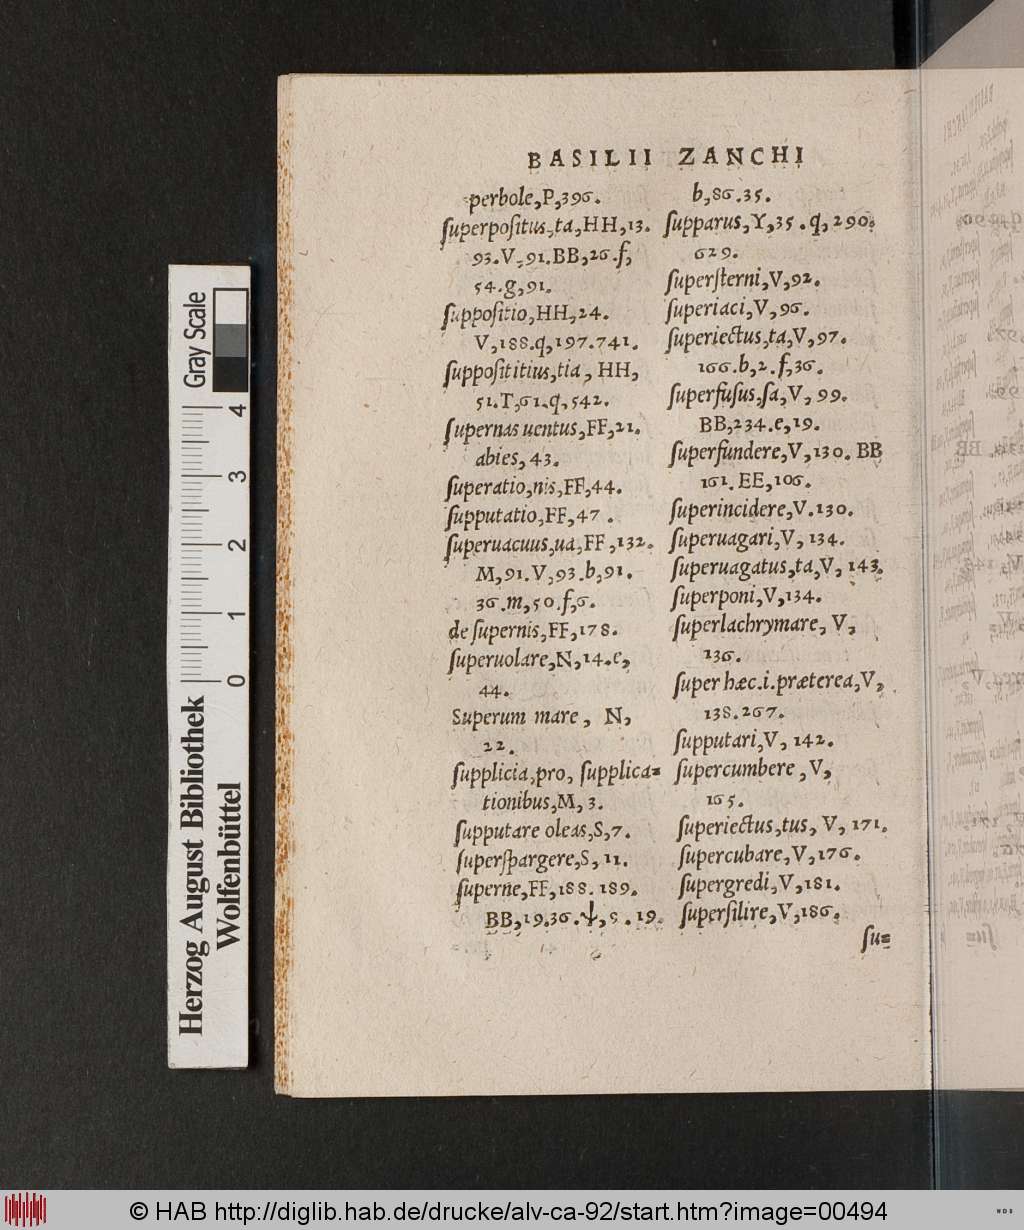 BASILII ZANCHI
perbole,P,396.
ſuperpoſitus,ta,HH,13.
93.V,91.BB,26.f,
54.g,91.
ſuppoſitio,HH,24.
V,188.q,197.741.
ſuppoſititius,tia, HH,
51.T,61.q,542.
ſupernas uentus,FF,21.
abies,43.
ſuperatio,nis,FF,44.
ſupputatio,FF,47.
ſuperuacuus,ua,FF,132.
M,91.V,93.b,91.
36.m,50.f,6.
de ſupernis,FF,178.
ſuperuolare,N,14.e,
44.
Superum mare, N,
22.
ſupplicia,pro, ſupplica=
tionibus,M,3.
ſupputare oleas,S,7.
ſuperſpargere,S,11.
ſuperne,FF,188.189.
BB,19.36.ψ,5.19.
b,86.35.
ſupparus,Y,35.q,290.
629.
ſuperſterni,V,92.
ſuperiaci,V,96.
ſuperiectus,ta,V,97.
166.b,2.f,36.
ſuperfuſus,ſa,V,99.
BB,234.e,19.
ſuperfundere,V,130. BB
161. EE,106.
ſuperincidere,V.130.
ſuperuagari,V, 134.
ſuperuagatus,ta,V, 143.
ſuperponi,V,134.
ſuperlachrymare, V,
136.
ſuper hæc.i.præterea,V,
138.267.
ſupputari,V, 142.
ſupercumbere,V,
165.
ſuperiectus,tus, V, 171.
ſupercubare,V,176.
ſupergredi,V,181.
ſuperſilire,V,186.
ſu=
Gray Scale
4
3
2
1
0
Herzog August Bibliothek
Wolfenbüttel
© HAB http://diglib.hab.de/drucke/alv-ca-92/start.htm?image=00494